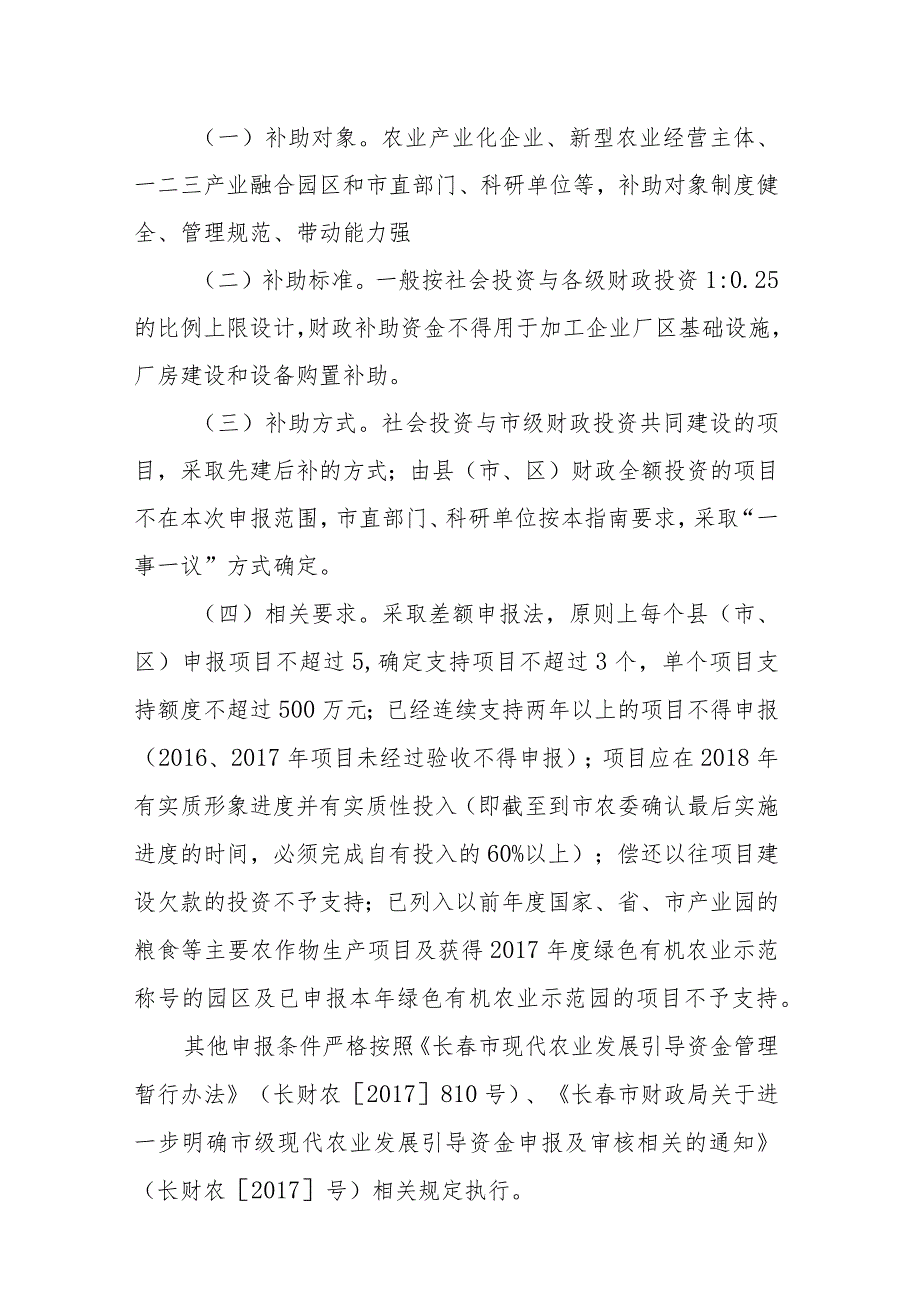 （一）补助对象。农业产业化企业、新型农业经营主体、
一二三产业融合园区和市直部门、科研单位等，补助对象制度健
全、管理规范、带动能力强
（二）补助标准。一般按社会投资与各级财政投资1:0.25
的比例上限设计，财政补助资金不得用于加工企业厂区基础设施，
厂房建设和设备购置补助。
（三）补助方式。社会投资与市级财政投资共同建设的项
目，采取先建后补的方式；由县（市、区）财政全额投资的项目
不在本次申报范围，市直部门、科研单位按本指南要求，采取“一
事一议”方式确定。
（四）相关要求。采取差额申报法，原则上每个县（市、
区）申报项目不超过5,确定支持项目不超过3个，单个项目支
持额度不超过500万元；已经连续支持两年以上的项目不得申报
（2016、2017年项目未经过验收不得申报）；项目应在2018年
有实质形象进度并有实质性投入（即截至到市农委确认最后实施
进度的时间，必须完成自有投入的60%以上）；偿还以往项目建
设欠款的投资不予支持；已列入以前年度国家、省、市产业园的
粮食等主要农作物生产项目及获得2017年度绿色有机农业示范
称号的园区及已申报本年绿色有机农业示范园的项目不予支持。
其他申报条件严格按照《长春市现代农业发展引导资金管理
暂行办法》（长财农［2017］810号）、《长春市财政局关于进
一步明确市级现代农业发展引导资金申报及审核相关的通知》
（长财农［2017］号）相关规定执行。